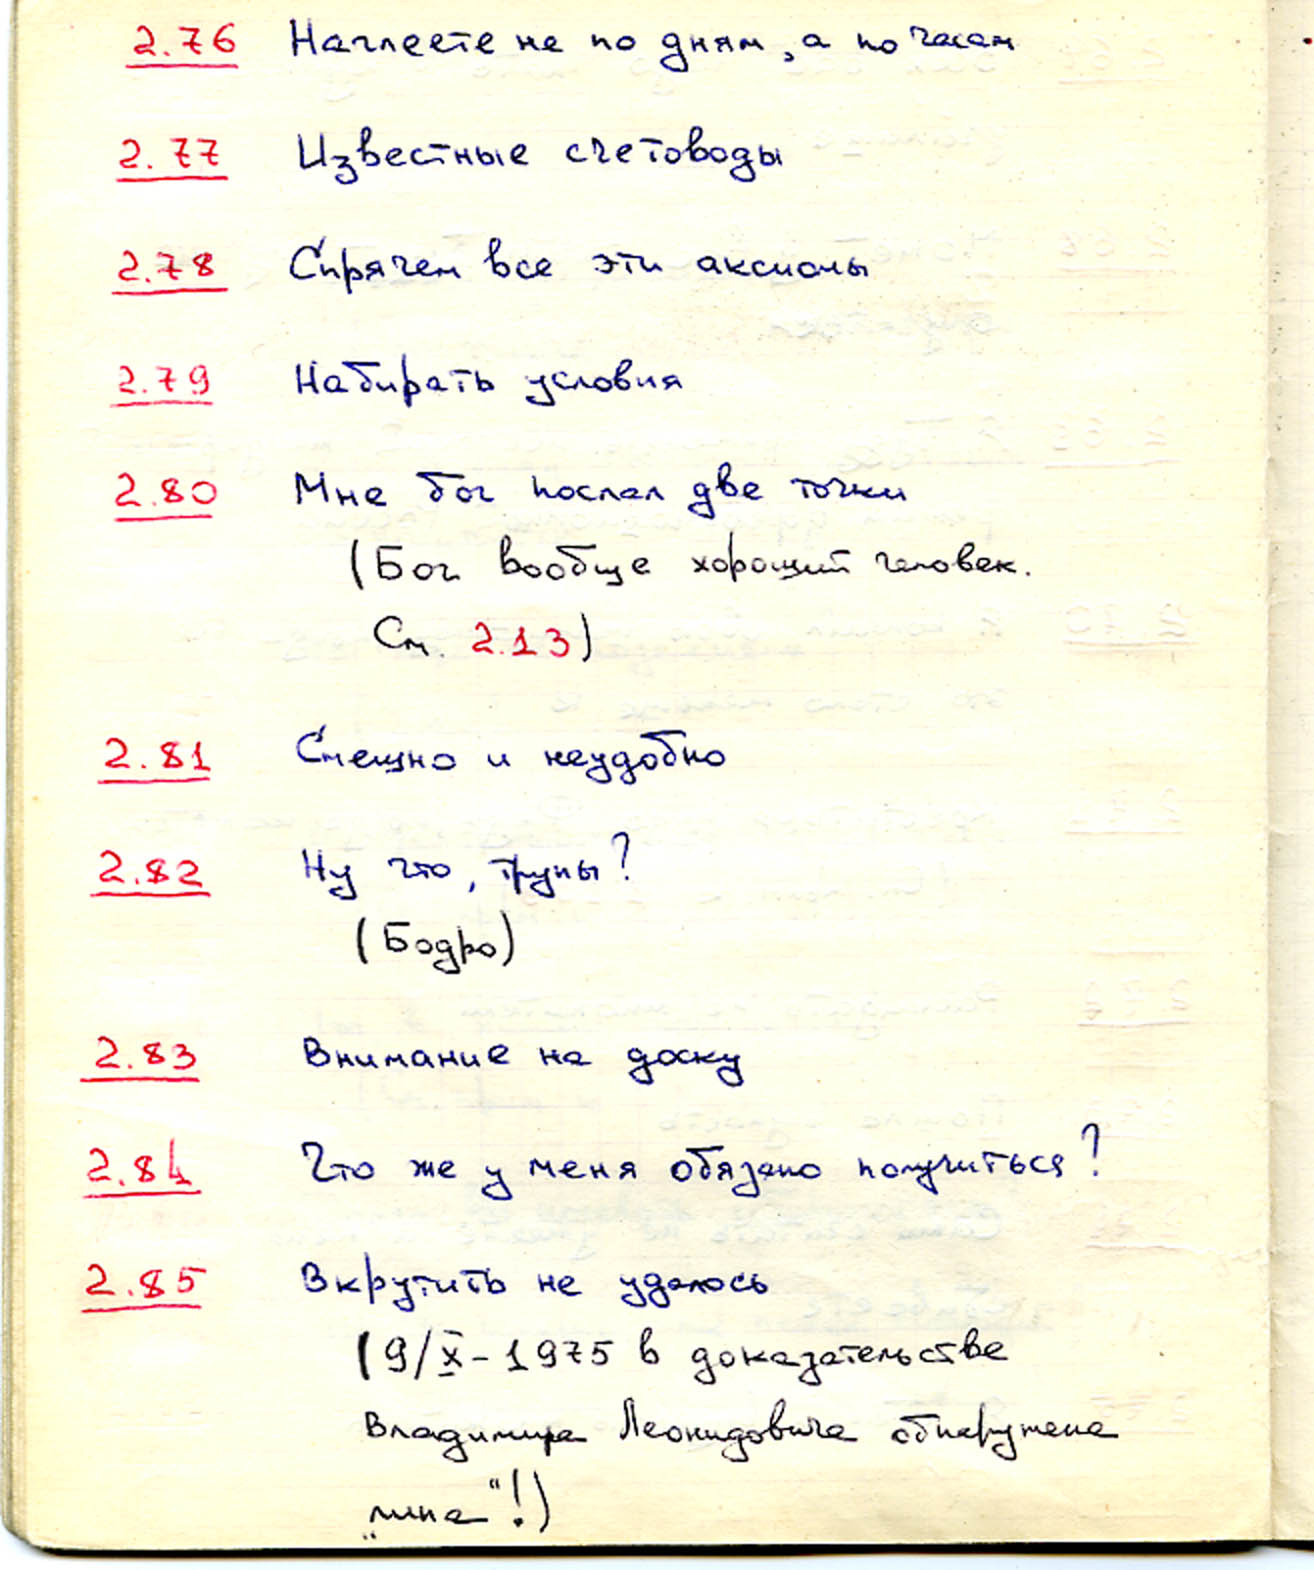 2.76 Наглеете не по дням, а по часам
2.77 Известные счетоводы
2.78 Спрячем все эти аксиомы
2.79 Набирать условия
2.80 Мне бог послал две точки
(Бог вообще хороший человек.
См. 2.13)
2.81 Смешно и неудобно
2.82 Ну что, трупы?
(Бодро)
2.83 Внимание на доску
2.84 Что же у меня обязано получиться?
2.85 Вкрутить не удалось
(9/X-1975 в доказательстве
Владимира Леонидовича обнаружена
„липа“!)